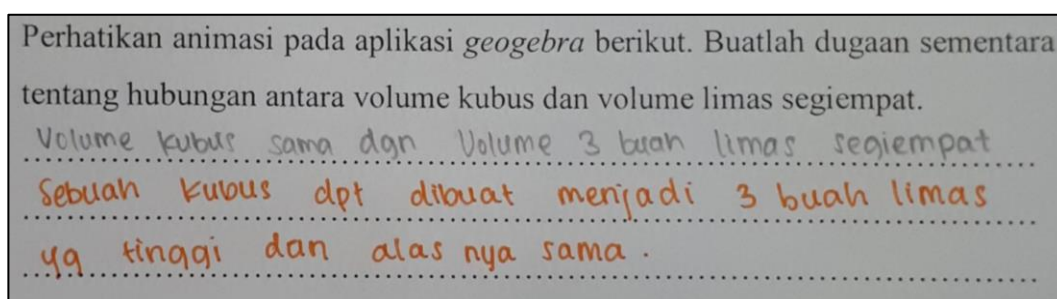 Perhatikan animasi pada aplikasi geogebra berikut. Buatlah dugaan sementara
tentang hubungan antara volume kubus dan volume limas segiempat.
Volume kubus sama dgn Volume 3 buah limas segiempat
Sebuah kubus dpt dibuat menjadi 3 buah limas
yg tinggi dan alas nya sama.